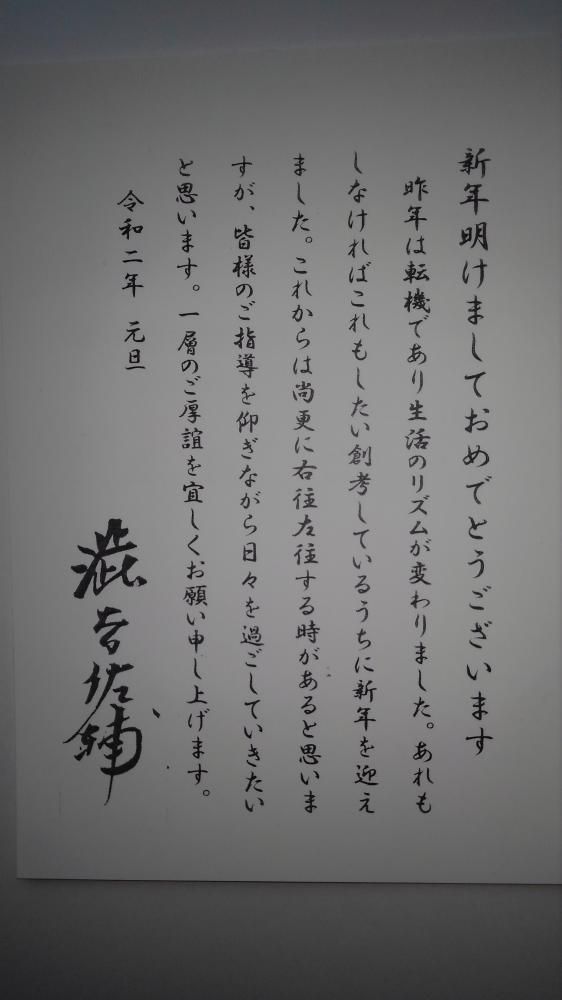 新年明けましておめでとうございます
昨年は転機であり生活のリズムが変わりました。あれも
しなければこれもしたい創考しているうちに新年を迎え
ました。これからは尚更に右往左往する時があると思いま
すが、皆様のご指導を仰ぎながら日々を過ごしていきたい
と思います。一層のご厚誼を宜しくお願い申し上げます。
令和二年 元旦